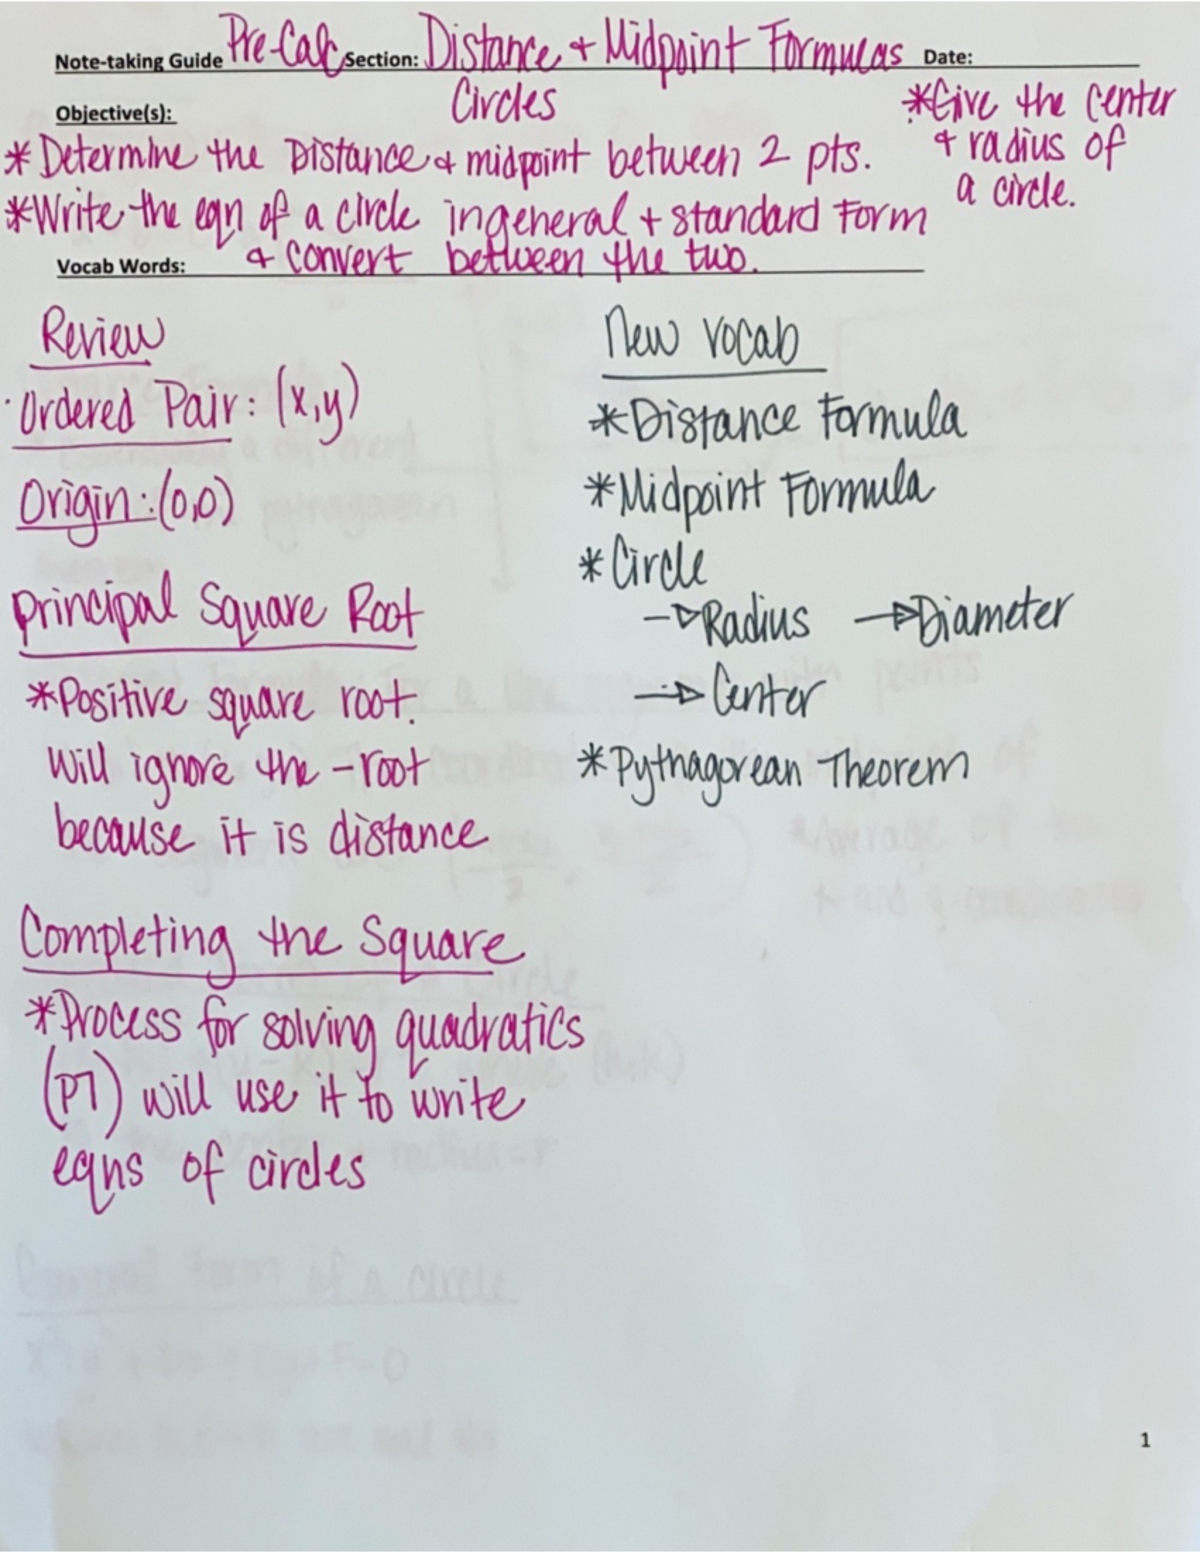 Note-taking Guide Pre-Calc Section: Distance + Midpoint Formulas Date:
Circles
Objective(s):
*Determine the Distance + midpoint between 2 pts.
*Write the eqn of a circle in general + standard Form
+ convert between the two.
*Give the center
+ radius of
a circle.
Vocab Words:
Review
Ordered Pair: (x,y)
Origin: (0,0)
Principal Square Root
*Positive square root.
Will ignore the -root
because it is distance
Completing the Square
*Process for solving quadratics
(P7) will use it to write
eqns of circles
New Vocab
*Distance Formula
*Midpoint Formula
*Circle
→Radius →Diameter
→Center
*Pythagorean Theorem
General form of a circle
1